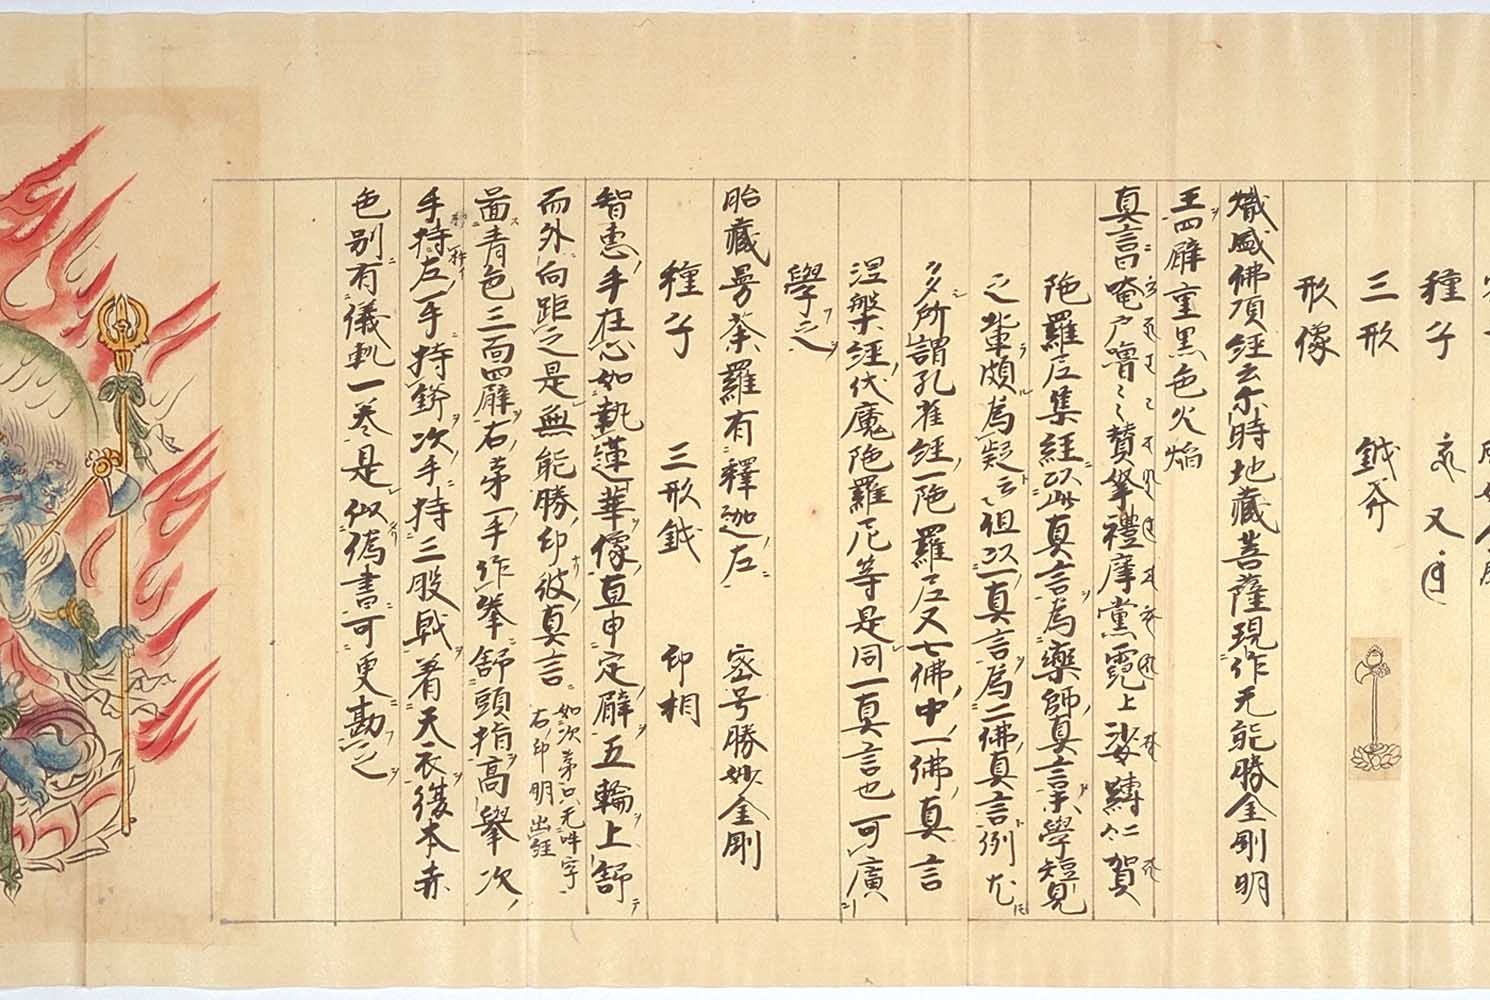 種子
三形　鉞斧
形像
熾盛佛頂經云尓時地藏菩薩現作无能勝金剛明
王四臂重黑色火焔
真言唵戸嚕〻〻賛拏禮摩黨霓上娑縳仁賀
陁羅尼集經以此真言爲藥師真言末學短見
之輩頗爲疑云〻但以一真言爲二佛真言例尤
多所謂孔雀經一陁羅尼又七佛中一佛真言
涅槃經伏魔陁羅尼等是同一真言也可廣
學之
胎藏曼荼羅有釋迦左　密号勝妙金剛
種子　三形鉞　印相
智惠手在心如執蓮華像直申定臂五輪上舒
而外向距之是無能勝印彼真言
如次第只无吽字
右印明出經
面青色三面四臂右第一手作拳舒頭指高擧次
手持左一手持鉾次手持三股戟着天衣復本赤
色別有儀軌一卷是似僞書可更勘之